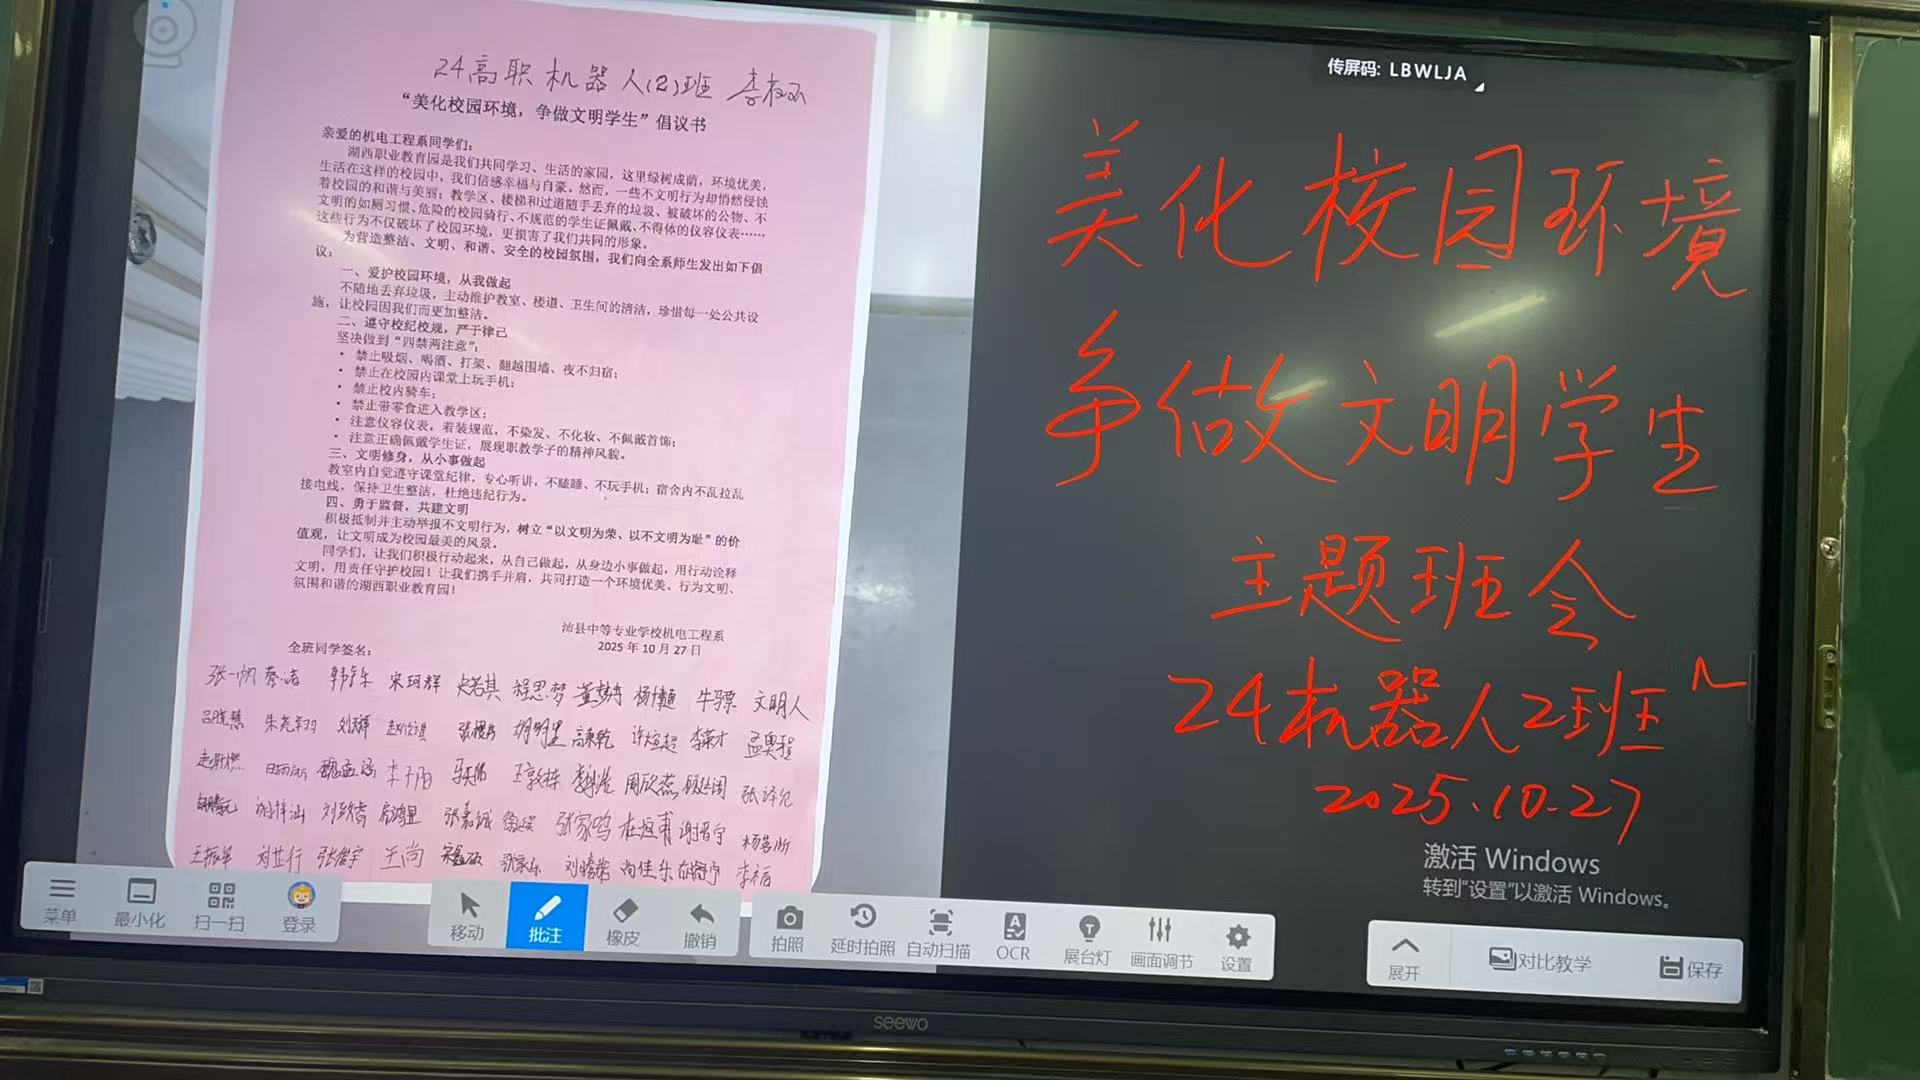 24高职机器人(2)班
“美化校园环境，争做文明学生”倡议书
亲爱的机电工程系同学们：
湖西职业教育园是我们共同学习、生活的家园，这里绿树成荫，环境优美，
生活在这样的校园中，我们倍感幸福与自豪。然而，一些不文明行为却悄然侵蚀
着校园的和谐与美丽：教学区、楼梯和过道随手丢弃的垃圾、被破坏的公物、不
文明的如厕习惯、危险的校园骑行、不规范的学生证佩戴、不得体的仪容仪表……
这些行为不仅破坏了校园环境，更损害了我们共同的形象。
为营造整洁、文明、和谐、安全的校园氛围，我们向全系师生发出如下倡
议：
一、爱护校园环境，从我做起
不随地丢弃垃圾，主动维护教室、楼道、卫生间的清洁，珍惜每一处公共设
施，让校园因我们而更加整洁。
二、遵守校纪校规，严于律己
坚决做到“四禁两注意”：
• 禁止吸烟、喝酒、打架、翻越围墙、夜不归宿；
• 禁止在校园内课堂上玩手机；
• 禁止校内骑车；
• 禁止带零食进入教学区；
• 注意仪容仪表，着装规范，不染发、不化妆、不佩戴首饰；
• 注意正确佩戴学生证，展现职教学子的精神风貌。
三、文明修身，从小事做起
教室内自觉遵守课堂纪律，专心听讲，不瞌睡、不玩手机；宿舍内不乱拉乱
接电线，保持卫生整洁，杜绝违纪行为。
四、勇于监督，共建文明
积极抵制并主动举报不文明行为，树立“以文明为荣、以不文明为耻”的价
值观，让文明成为校园最美的风景。
同学们，让我们积极行动起来，从自己做起，从身边小事做起，用行动诠释
文明，用责任守护校园！让我们携手并肩，共同打造一个环境优美、行为文明、
氛围和谐的湖西职业教育园！
沛县中等专业学校机电工程系
2025年10月27日
全班同学签名：
张一帆 宋珂辉 程思梦 牛骠 文明人
许煊超 孟奥程
李子涵 王敦栋 周欣蕊 张译允
谢梓涵 张嘉诚 张家鸣 杜垣甫 谢晋宁
王振华 刘芷行 张俊宇 王尚 李福
传屏码: LBWLJA
美化校园环境
争做文明学生
主题班会
24机器人2班
2025.10.27
激活 Windows
转到“设置”以激活 Windows。
菜单 最小化 扫一扫 登录
移动 批注 橡皮 撤销
拍照 延时拍照 自动扫描 OCR 展台灯 画面调节 设置
展开 对比教学 保存
seewo